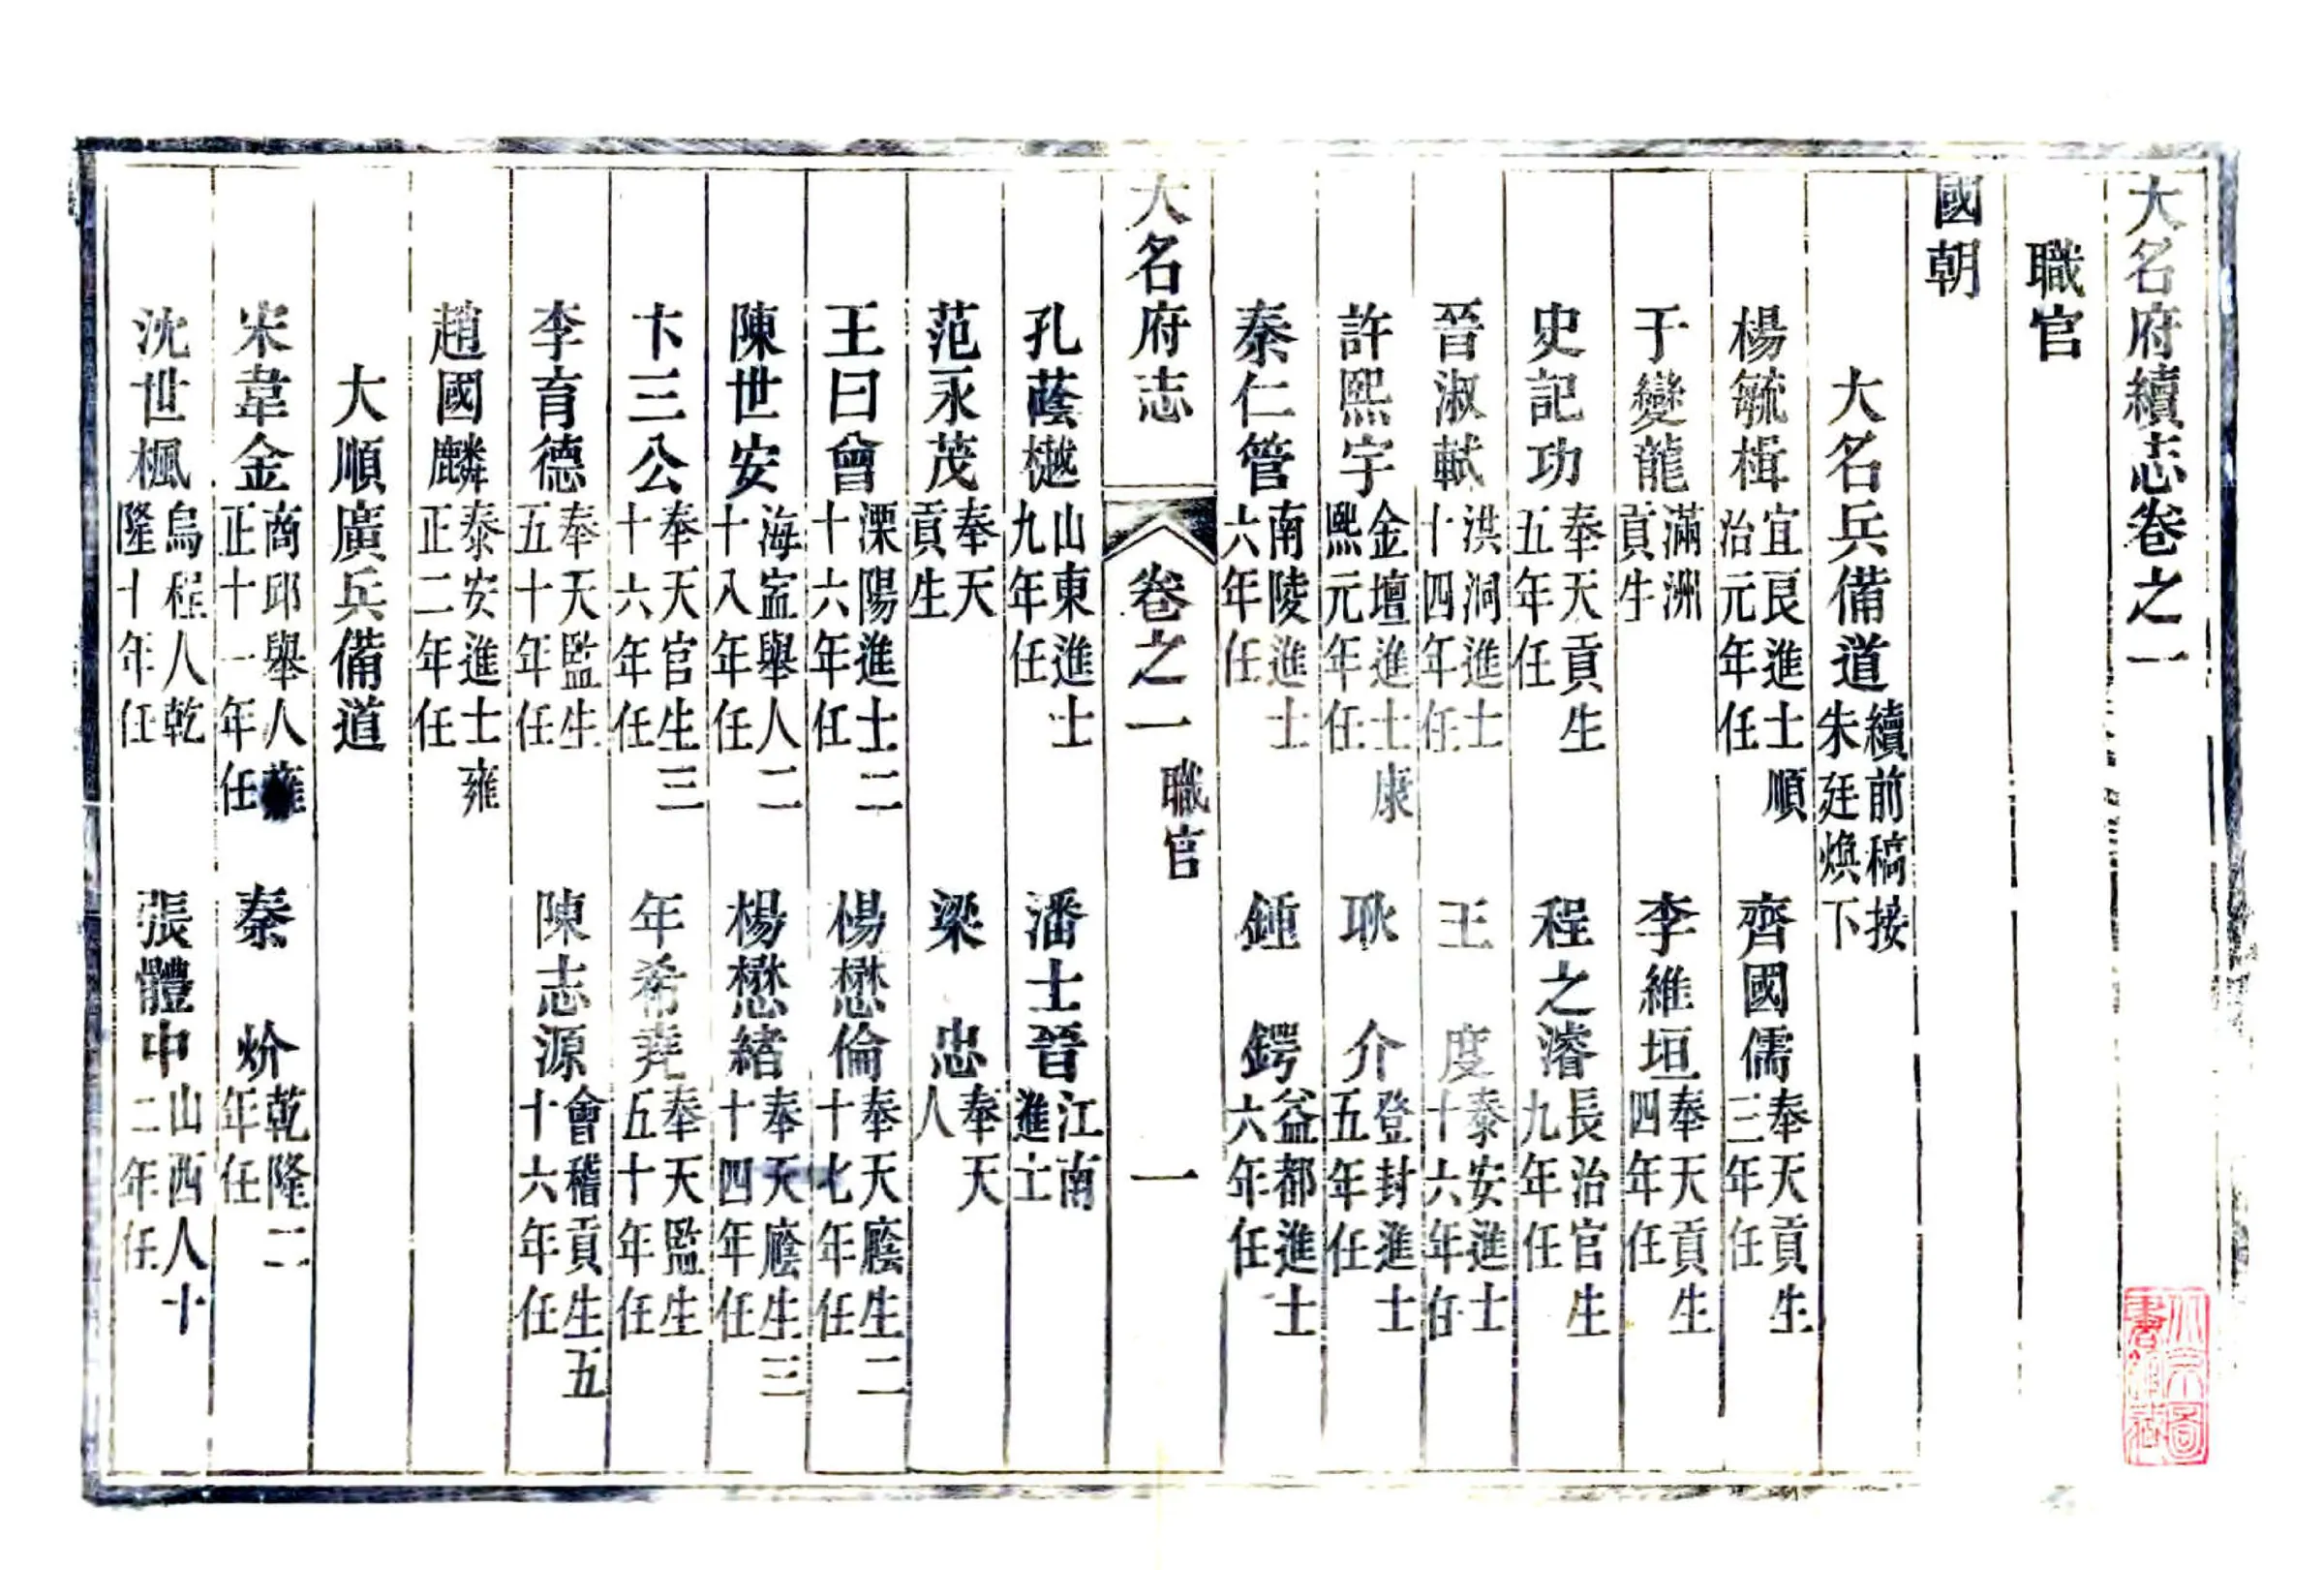 大名府續志卷之一
職官
國朝
大名兵備道續前稿接朱廷煥下
楊毓楫宜良進士順治元年任 齊國儒奉天貢生三年任
于變龍滿洲貢生 李維垣奉天貢生四年任
史記功奉天貢生五年任 程之濬長治官生九年任
晉淑軾洪洞進士十四年任 王度泰安進士十六年任
許熙宇金壇進士康熙元年任 耿介登封進士五年任
秦仁管南陵進士六年任 鍾鍔益都進士六年任
大名府志 卷之一 職官 一
孔蔭樾山東進士九年任 潘士晉江南進士
范永茂奉天貢生 梁忠奉天人
王曰曾溧陽進士二十六年任 楊懋倫奉天廕生二十七年任
陳世安海寍舉人二十八年任 楊懋緒奉天廕生三十四年任
卞三公奉天官生三十六年任 年希堯奉天監生五十年任
李育德奉天監生五十年任 陳志源會稽貢生五十六年任
趙國麟泰安進士雍正二年任
大順廣兵備道
宋韋金商邱舉人雍正十一年任 秦炌乾隆二年任
沈世楓烏程人乾隆十年任 張體中山西人十二年任